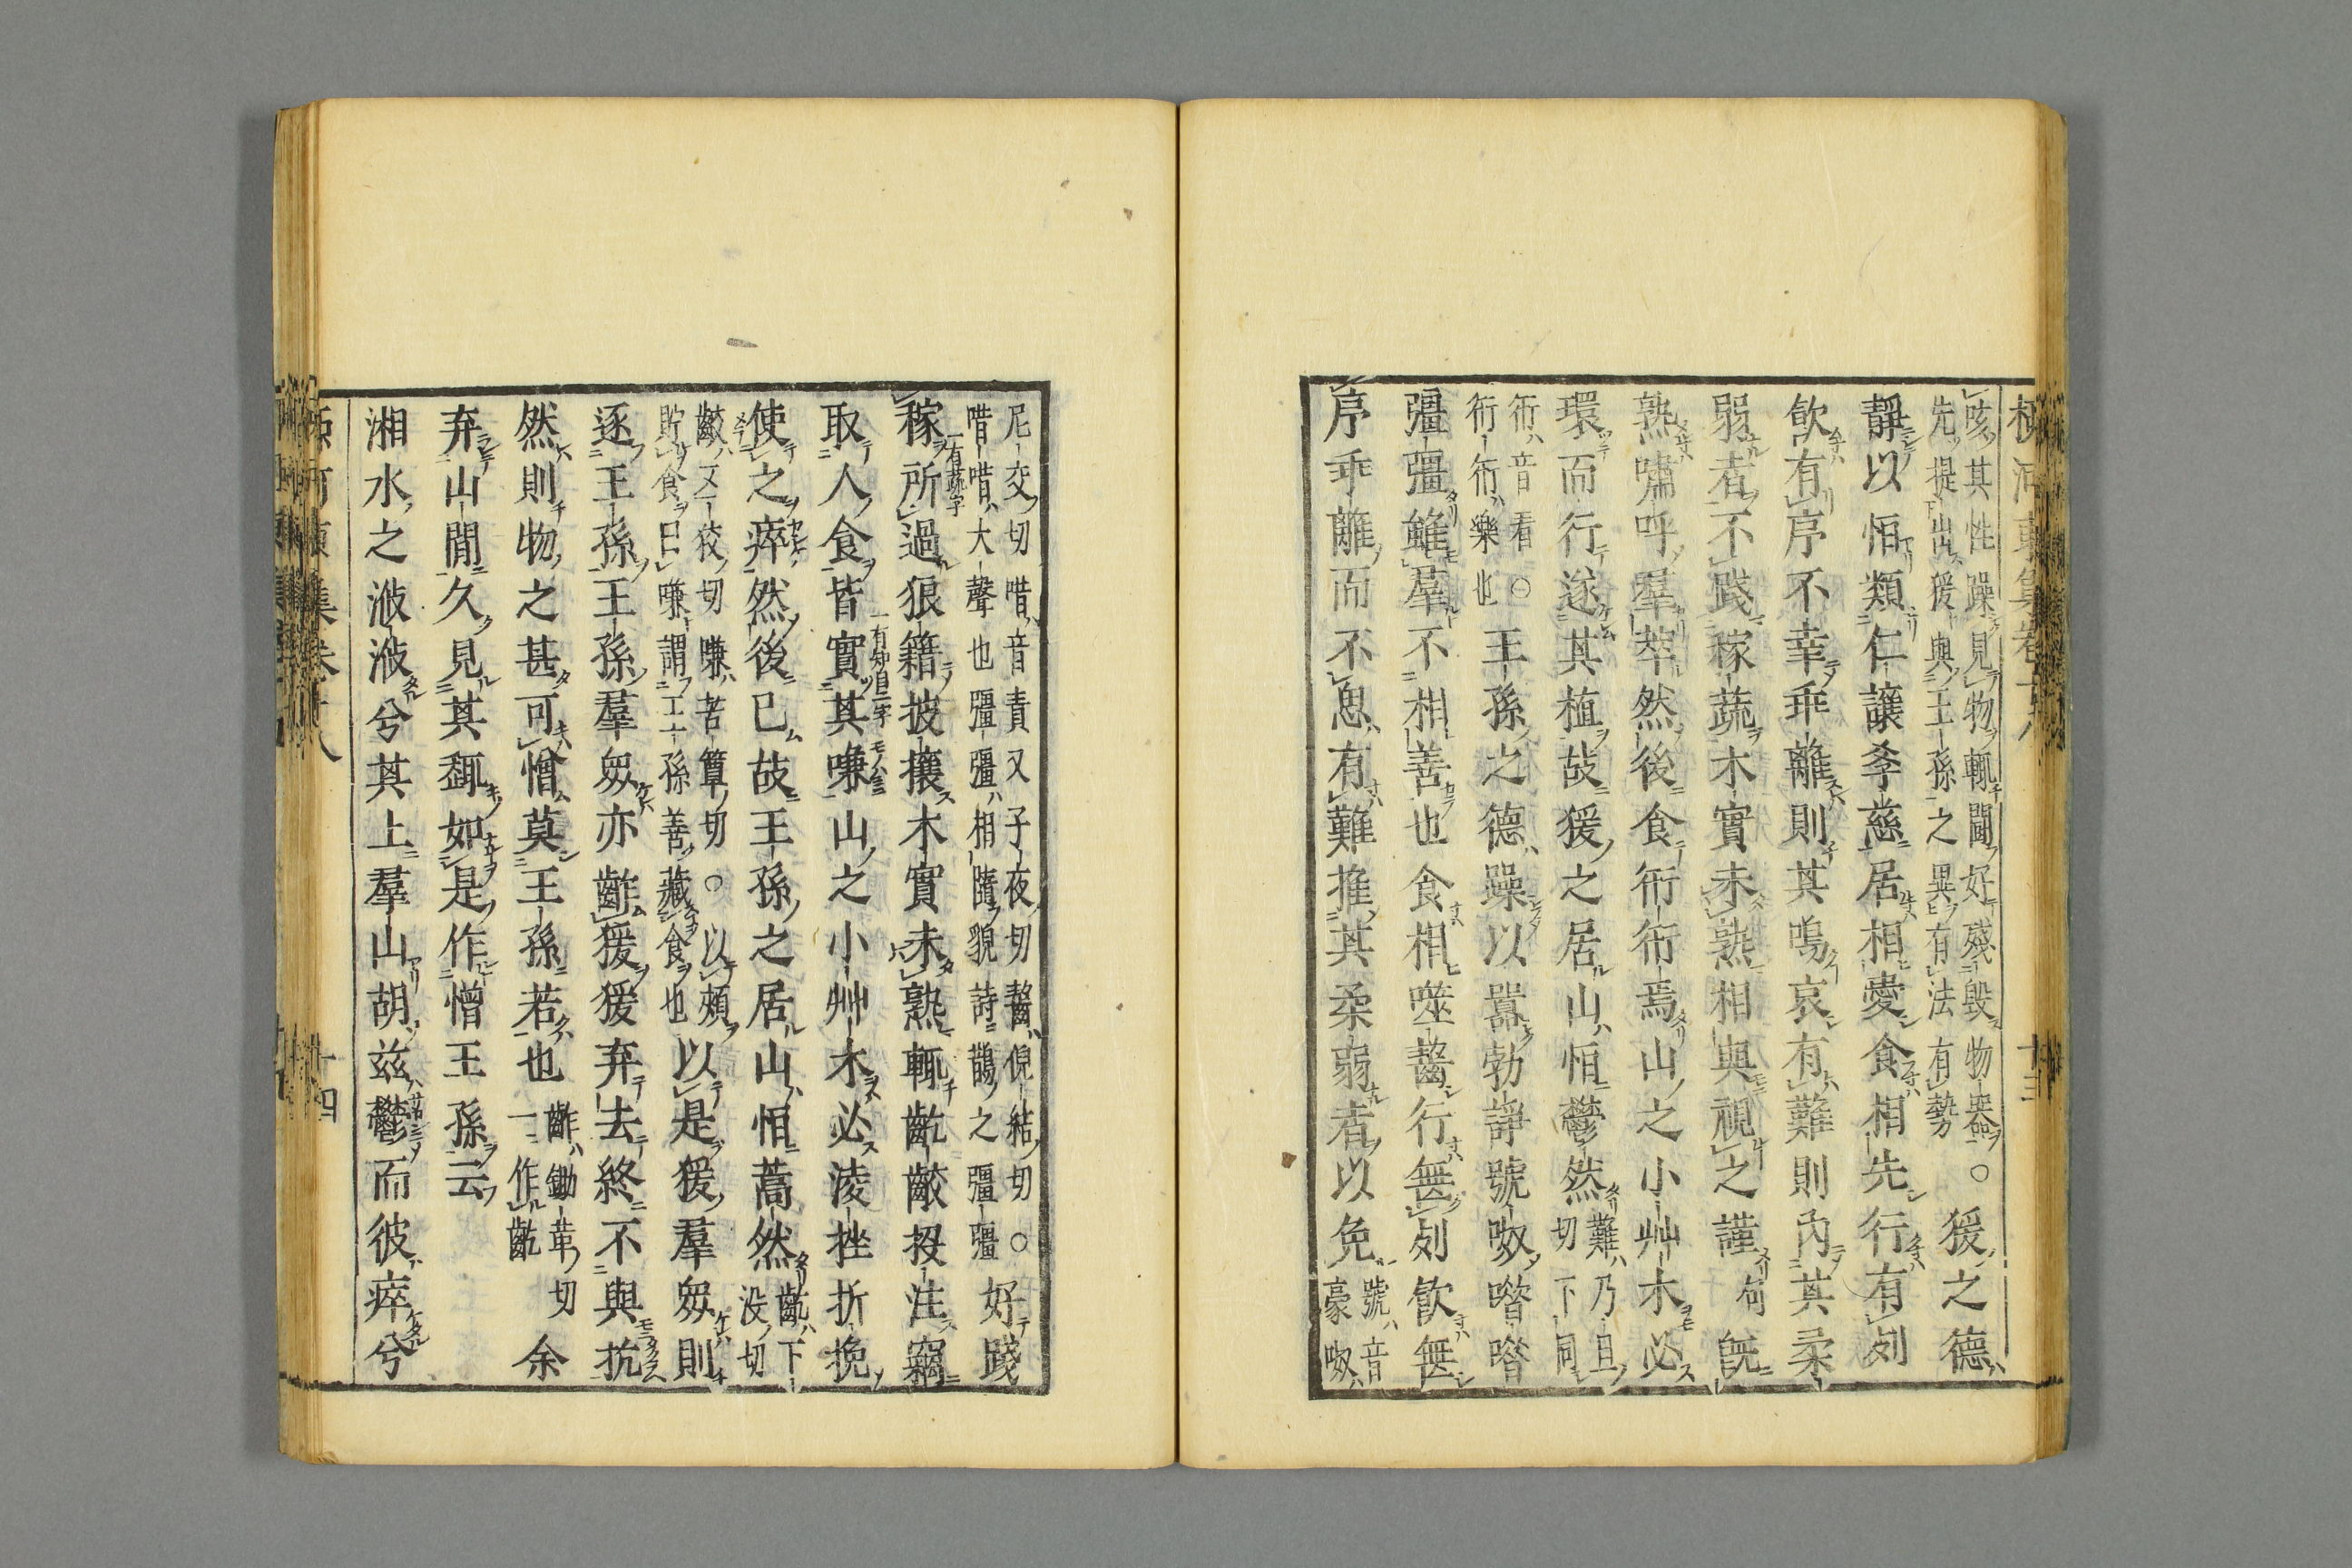 咳其性躁見物輒鬪好殘毀物器○猿之德
先提出猨與王孫之異有法有勢
靜以恒類仁讓孝慈居相愛食相先行有列
飮有序不幸乖離則其鳴哀有難則內其柔
弱者不踐稼蔬木實未熟相與視之謹句旣
熟嘯呼羣萃然後食衎衎焉山之小艸木必
環而行遂其植故猨之居山恒鬱然難乃且切下同
衎音看○王孫之德躁以嚣勃諍號呶唶唶
衎衎樂也
彊彊雖羣不相善也食相噬齧行無列飮無
序乖離而不思有難推其柔弱者以免號音豪呶
尼交切唶音責又子夜切齧倪結切○好踐
唶唶大聲也彊彊相隨貌詩鵲之彊彊
稼蔬所過狼籍披攘木實未熟輒齕齩投注竊
一有蔬字
取人食皆實其嗛山之小艸木必淩挫折挽
一有知自二字
使之瘁然後已故王孫之居山恒蒿然齕下沒切
齩五狡切嗛苦簟切○以頰
貯食曰嗛謂王孫善藏食也
以是猨羣衆則
逐王孫王孫羣衆亦齚猨猨弃去終不與抗
然則物之甚可憎莫王孫若也齚鋤革切一作齕余
弃山閒久見其趣如是作憎王孫云
湘水之浟浟兮其上羣山胡兹鬱而彼瘁兮
河東集卷十八
十四